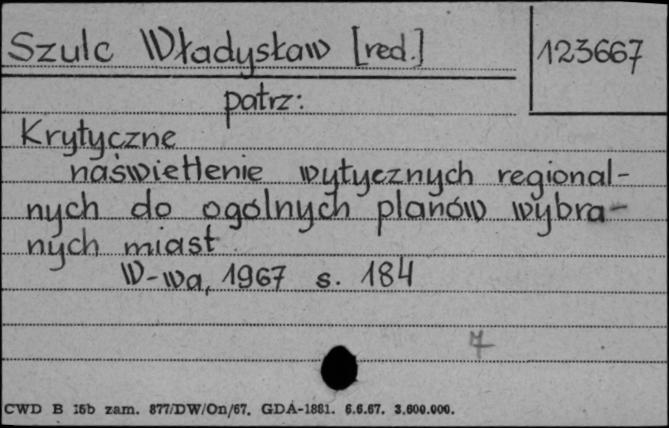 Szulc Władysław [red.] 123667
patrz:
Krytyczne
naświetlenie wytycznych regional-
nych do ogólnych planów wybra-
nych miast
W-wa, 1967 s. 184
7
CWD B 15b zam. 877/DW/On/67. GDA-1881. 6.6.67. 3.600.000.